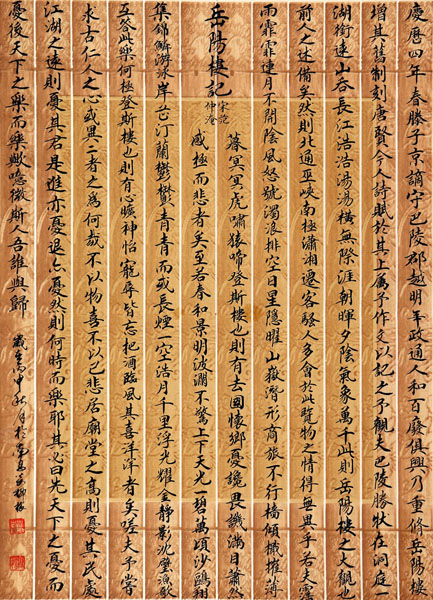 慶曆四年春滕子京謫守巴陵郡越明年政通人和百廢俱興乃重修岳陽樓
增其舊制刻唐賢今人詩賦於其上屬予作文以記之予觀夫巴陵勝狀在洞庭一
湖銜遠山吞長江浩浩湯湯橫無際涯朝暉夕陰氣象萬千此則岳陽樓之大觀也
前人之述備矣然則北通巫峽南極瀟湘遷客騷人多會於此覽物之情得無異乎若夫霪
雨霏霏連月不開陰風怒號濁浪排空日星隱曜山嶽潛形商旅不行檣傾楫摧薄
岳陽樓記
宋范
仲淹
暮冥冥虎嘯猿啼登斯樓也則有去國懷鄉憂讒畏譏滿目蕭然
感極而悲者矣至若春和景明波瀾不驚上下天光一碧萬頃沙鷗翔
集錦鱗游泳岸芷汀蘭鬱鬱青青而或長煙一空浩月千里浮光耀金靜影沉璧漁歌
互答此樂何極登斯樓也則有心曠神怡寵辱皆忘把酒臨風其喜洋洋者矣嗟夫予嘗
求古仁人之心或異二者之為何哉不以物喜不以己悲居廟堂之高則憂其民處
江湖之遠則憂其君是進亦憂退亦憂然則何時而樂耶其必曰先天下之憂而
憂後天下之樂而樂歟噫微斯人吾誰與歸
歲在丙申秋月於